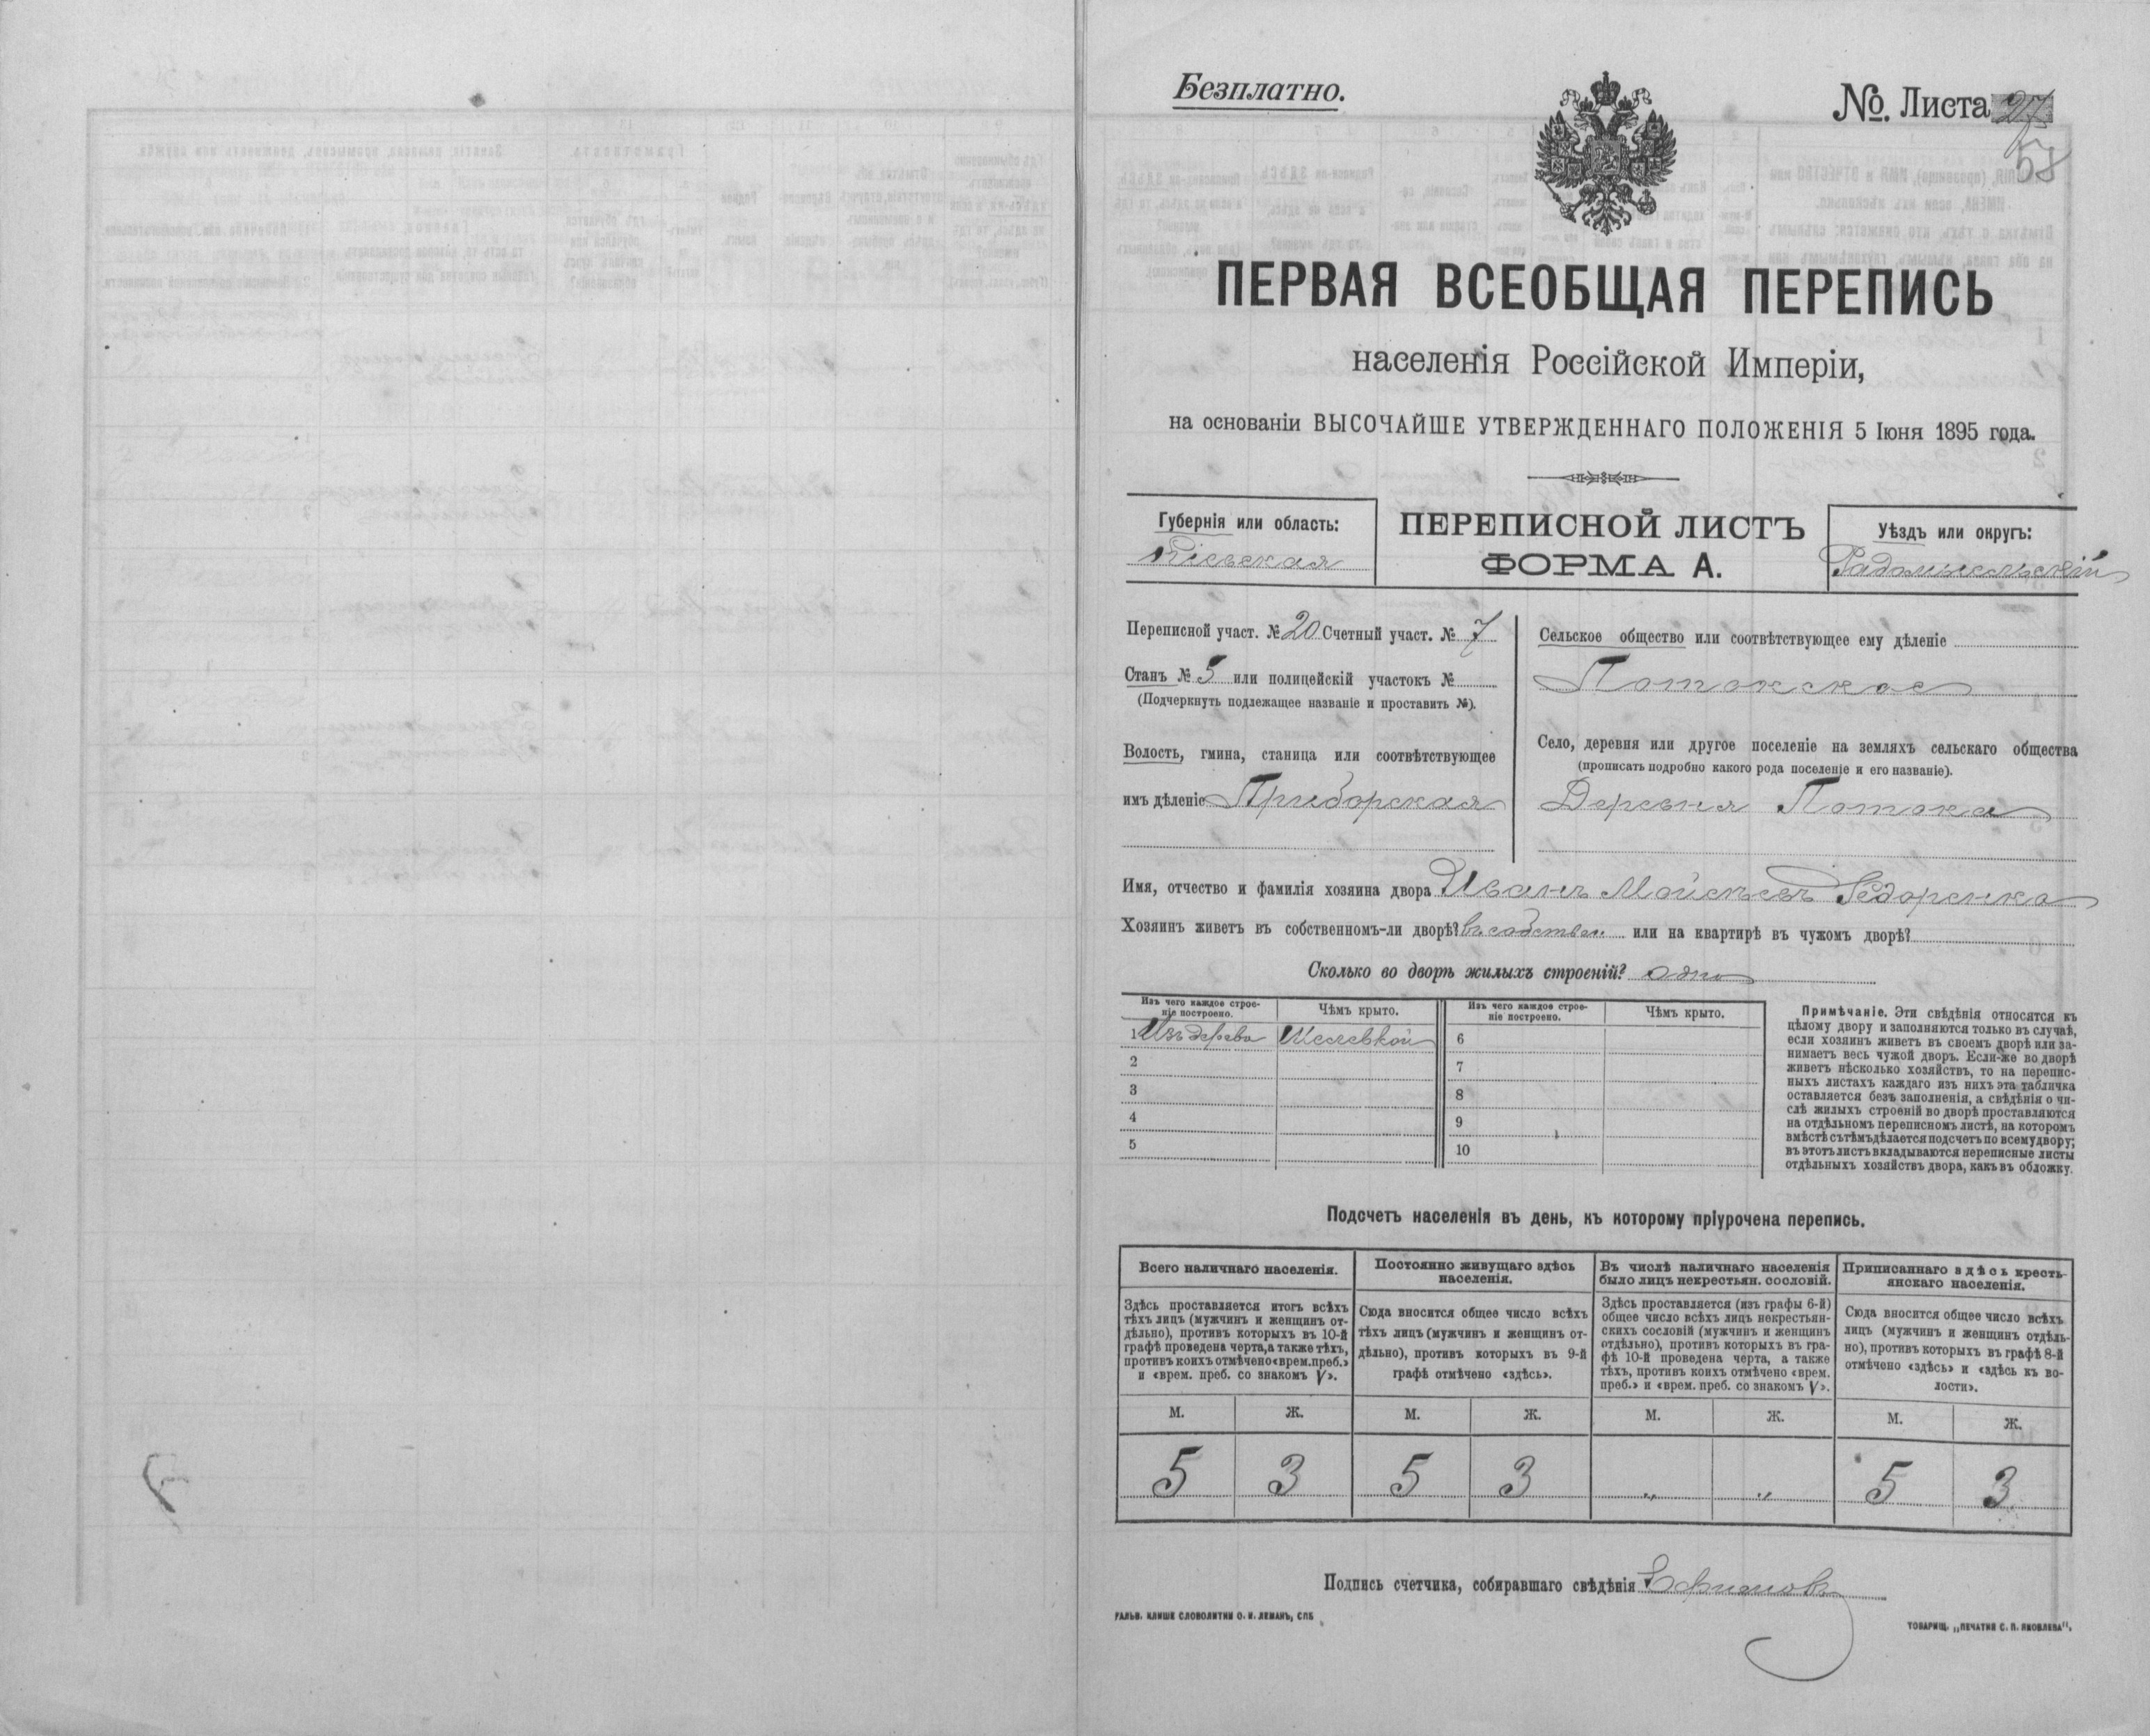 Безплатно.
№. Листа 27
58
ПЕРВАЯ ВСЕОБЩАЯ ПЕРЕПИСЬ
населенія Россійской Имперіи,
на основаніи ВЫСОЧАЙШЕ УТВЕРЖДЕННАГО ПОЛОЖЕНІЯ 5 Іюня 1895 года.
Губернія или область:
Кіевская
ПЕРЕПИСНОЙ ЛИСТЪ
ФОРМА А.
Уѣздъ или округъ:
Радомысльскій
Переписной участ. № 20 Счетный участ. № 7
Станъ № 5 или полицейскій участокъ №
(Подчеркнуть подлежащее названіе и проставить №).
Волость, гмина, станица или соотвѣтствующее
имъ дѣленіе Приборская
Сельское общество или соотвѣтствующее ему дѣленіе
Потокское
Село, деревня или другое поселеніе на земляхъ сельскаго общества
(прописать подробно какого рода поселеніе и его названіе).
Деревня Потока
Имя, отчество и фамилія хозяина двора Иванъ Мойсѣевъ Федоренко
Хозяинъ живетъ въ собственномъ-ли дворѣ? въ собствен. или на квартирѣ въ чужомъ дворѣ?
Сколько во дворѣ жилыхъ строеній? одно
Изъ чего каждое строе-
ніе построено.
Чѣмъ крыто.
Изъ чего каждое строе-
ніе построено.
Чѣмъ крыто.
1 Изъ дерева
6
2
7
3
8
4
9
5
10
Примѣчаніе. Эти свѣдѣнія относятся къ
цѣлому двору и заполняются только въ случаѣ,
если хозяинъ живетъ въ своемъ дворѣ или за-
нимаетъ весь чужой дворъ. Если-же во дворѣ
живетъ нѣсколько хозяйствъ, то на перепис-
ныхъ листахъ каждаго изъ нихъ эта табличка
оставляется безъ заполненія, а свѣдѣнія о чи-
слѣ жилыхъ строеній во дворѣ проставляются
на отдѣльномъ переписномъ листѣ, на которомъ
вмѣстѣ съ тѣмъ дѣлается подсчетъ по всему двору;
въ этотъ листъ вкладываются переписные листы
отдѣльныхъ хозяйствъ двора, какъ въ обложку.
Подсчетъ населенія въ день, къ которому пріурочена перепись.
Всего наличнаго населенія.
Здѣсь проставляется итогъ всѣхъ
тѣхъ лицъ (мужчинъ и женщинъ от-
дѣльно), противъ которыхъ въ 10-й
графѣ проведена черта, а также тѣхъ,
противъ коихъ отмѣчено «врем. преб.»
и «врем. преб. со знакомъ V».
М.
Ж.
5
3
Постоянно живущаго здѣсь
населенія.
Сюда вносится общее число всѣхъ
тѣхъ лицъ (мужчинъ и женщинъ от-
дѣльно), противъ которыхъ въ 9-й
графѣ отмѣчено «здѣсь».
М.
Ж.
5
3
Въ числѣ наличнаго населенія
было лицъ некрестьян. сословій.
Здѣсь проставляется (изъ графы 6-й)
общее число всѣхъ лицъ некрестьян-
скихъ сословій (мужчинъ и женщинъ
отдѣльно), противъ которыхъ въ гра-
фѣ 10-й проведена черта, а также
тѣхъ, противъ коихъ отмѣчено «врем.
преб.» и «врем. преб. со знакомъ V».
М.
Ж.
„
„
Приписаннаго здѣсь кресть-
янскаго населенія.
Сюда вносится общее число всѣхъ
лицъ (мужчинъ и женщинъ отдѣль-
но), противъ которыхъ въ графѣ 8-й
отмѣчено «здѣсь» и «здѣсь къ во-
лости».
М.
Ж.
5
3
Подпись счетчика, собиравшаго свѣдѣнія
ГАЛЬВ. КЛИШЕ СЛОВОЛИТНИ О. И. ЛЕМАНЪ, СПБ
ТОВАРИЩ. „ПЕЧАТНЯ С. П. ЯКОВЛЕВА“.